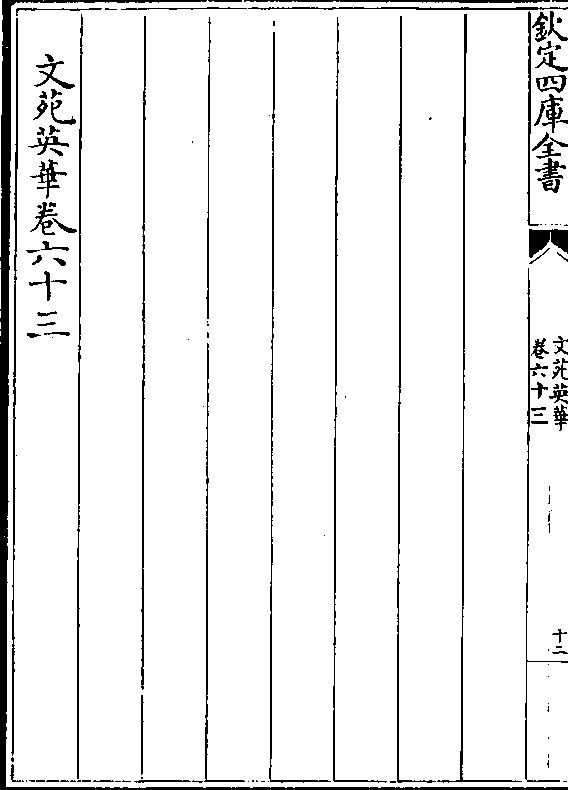 欽定四庫全書
文苑英華
卷六十三
十二
文苑英華卷六十三